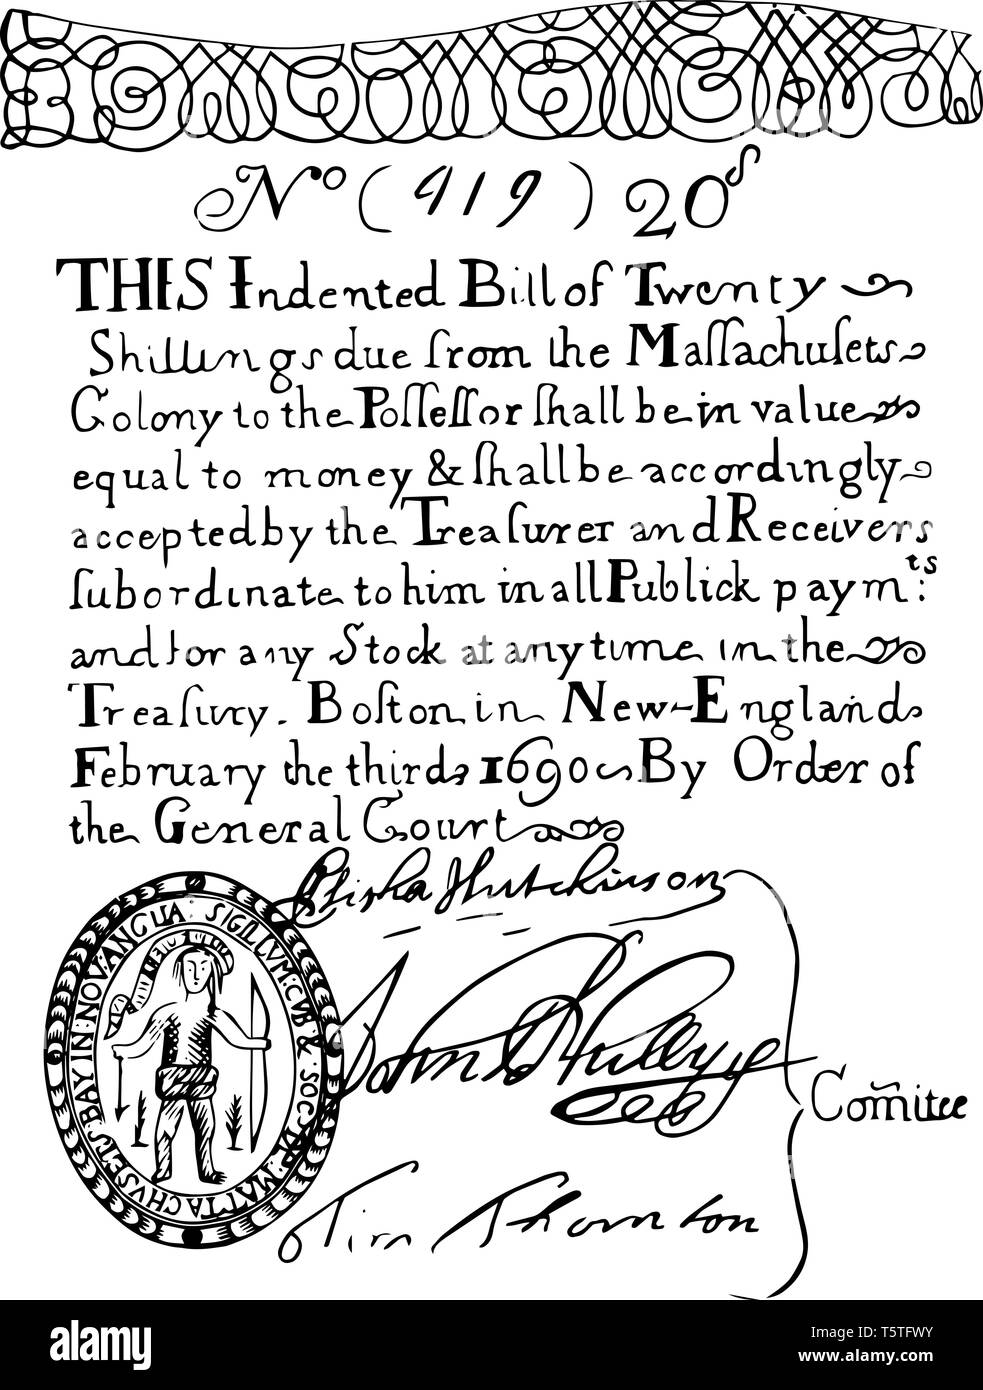 No (919) 20s
THIS Indented Bill of Twenty
Shillings due from the Massachusets
Colony to the Possessor shall be in value
equal to money & shall be accordingly
accepted by the Treasurer and Receivers
subordinate to him in all Publick paymts:
and for any Stock at any time in the
Treasury. Boston in New-England
February the third 1690 By Order of
the General Court
Elisha Hutchinson
John Phillips
Comittee
Tim Thornton
SIGILLUM: CVB & SOC: DE: MATTACHVSETS: BAY IN: NOV: ANGLIA:
alamy
Image ID: T5TFWY
www.alamy.com